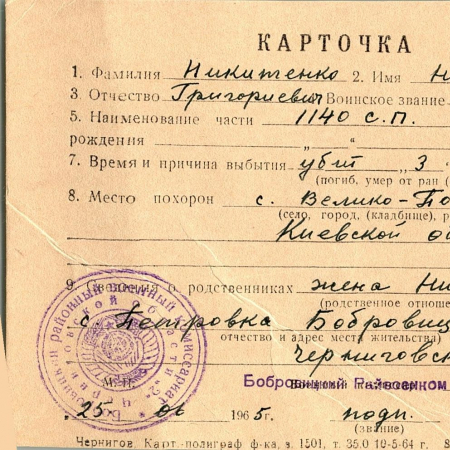 КАРТОЧКА
1. Фамилия Никитенко 2. Имя Н
3. Отчество Григориевич Воинское звание
5. Наименование части 1140 с.п.
рождения „ “
7. Время и причина выбытия убит „3
(погиб, умер от ран (
8. Место похорон с. Велико-По
(село, город, (кладбище), р
Киевской о
9. Сведения о родственниках жена Ни
(родственное отноше
с Петровка Бобровиц
отчество и адрес места жительства)
Черниговс
М. П. Бобровицкий Райвоенком
„25 06 1965г. подп.
(звание)
Чернигов. Карт.-полиграф ф-ка, з. 1501, т. 35.0 10-5-64 г. 8